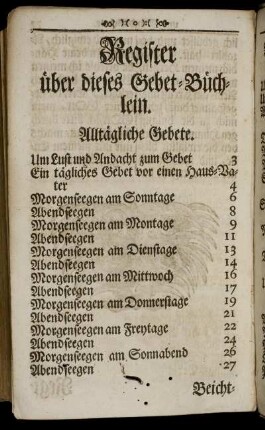 Register
über dieses Gebet-Büch-
lein.
Alltägliche Gebete.
Um Lust und Andacht zum Gebet 3
Ein tägliches Gebet vor einen Haus-Va-
ter 4
Morgenseegen am Sonntage 6
Abendseegen 8
Morgenseegen am Montage 9
Abendseegen 11
Morgenseegen am Dienstage 13
Abendseegen 14
Morgenseegen am Mittwoch 16
Abendseegen 17
Morgenseegen am Donnerstage 19
Abendseegen 21
Morgenseegen am Freytage 22
Abendseegen 24
Morgenseegen am Sonnabend 26
Abendseegen 27
Beicht-